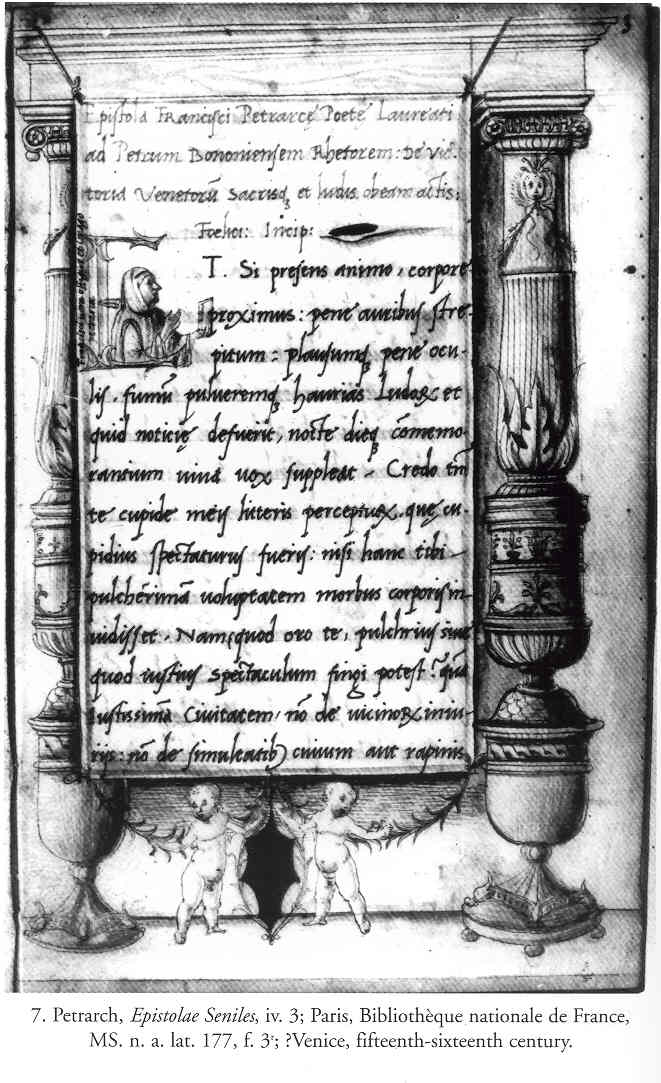 Epistola Francisci Petrarcę Poetę Laureati
ad Petrum Bononiensem Rhetorem: De Vic¬
toria Venetorũ Sacrisq et ludis obeam actis:
Foelici: Incip:
T. Si presens animo, corpore
proximus: pene auribus stre¬
pitum: plausumq pene ocu¬
lis. fumũ pulueremq haurias Ludoꝝ et
quid noticię defuerit, nocte dieq cõmemo¬
rantium uiua uox suppleat. Credo tñ
te cupide meis litteris perceptuꝝ. quę cu¬
pidius spectaturus fueris: nisi hanc tibi
pulcherrimã uoluptatem morbus corporis in¬
uidisset. Nam, quod oro te, pulchrius siue
quod iustius spectaculum fingi potest? quã
Iustissimã Ciuitatem, nõ de uicinoꝝ iniu¬
rijs: nõ de simultatib) ciuium aut rapinis
7. Petrarch, Epistolae Seniles, iv. 3; Paris, Bibliothèque nationale de France,
MS. n. a. lat. 177, f. 3ʳ; ?Venice, fifteenth-sixteenth century.